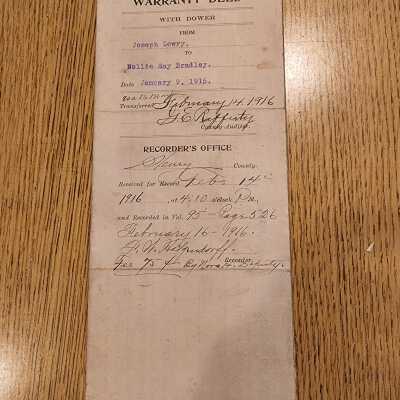 WARRANTY DEED
WITH DOWER
FROM
Joseph Lowry.
TO
Nellie May Bradley.
Date January 9, 1915.
Transferred February 14, 1916
County Auditor.
RECORDER'S OFFICE
Henry County.
Received for Record Feb. 14
1916 at 4:10 o'clock P.M.
and Recorded in Vol. 95 - Page 526
February 16 - 1916.
Recorder.
Fee 75 ¢ By Deputy.